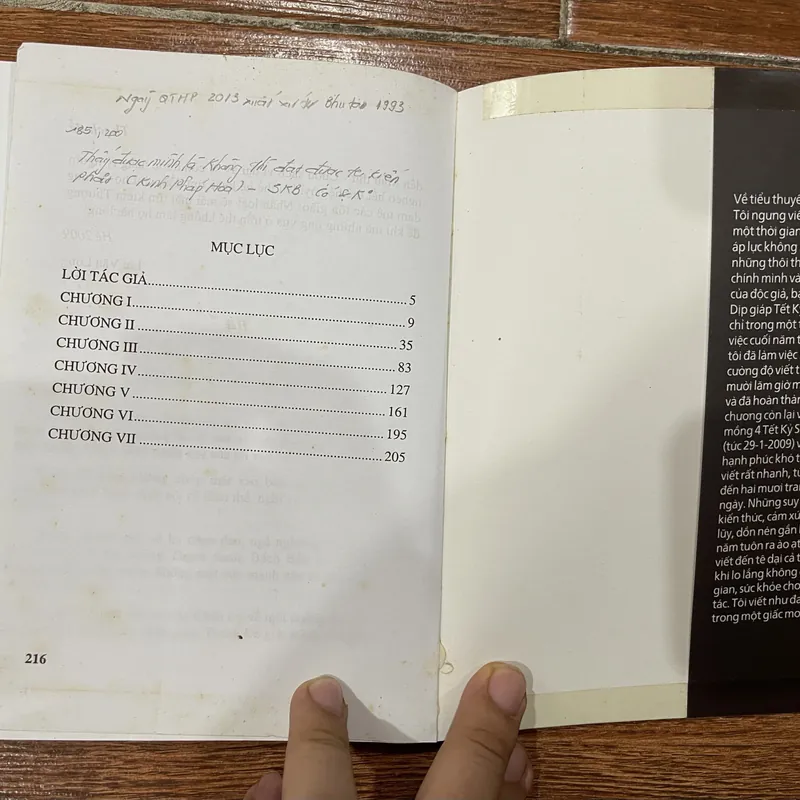 Ngaỹ QTHP 2013 xuất xứ từ Bhu tan 1993
185, 200
Thấy được mình là không thì đạt được tri kiến
phật (Kinh Pháp Hoa) - SKB Có &
MỤC LỤC
LỜI TÁC GIẢ.....5
CHƯƠNG I.....9
CHƯƠNG II.....35
CHƯƠNG III.....83
CHƯƠNG IV.....127
CHƯƠNG V.....161
CHƯƠNG VI.....195
CHƯƠNG VII.....205
216
Về tiểu thuyế
Tôi ngưng viế
một thời gian
áp lực không
những thôi th
chính mình và
của độc giả, bạ
Dịp giáp Tết K
chỉ trong một t
việc cuối năm t
tôi đã làm việc
cường độ viết t
mười lăm giờ m
và đã hoàn thàn
chương còn lại v
mồng 4 Tết Kỷ S
(tức 29-1-2009) v
hạnh phúc khó t
viết rất nhanh, tu
đến hai mươi tran
ngày. Những suy
kiến thức, cảm xú
lũy, dồn nén gần
năm tuôn ra ào ạt
viết đến tê dại cả t
khi lo lắng không
gian, sức khỏe cho
tác. Tôi viết như đa
trong một giấc mơ